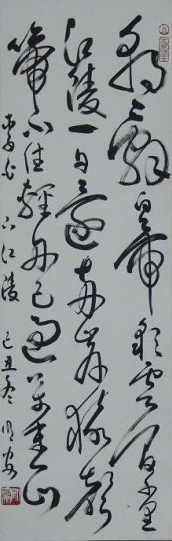 朝辭白帝彩雲间千里
江陵一日還两岸猿聲
啼不住輕舟已過万重山
李白 下江陵 己丑冬